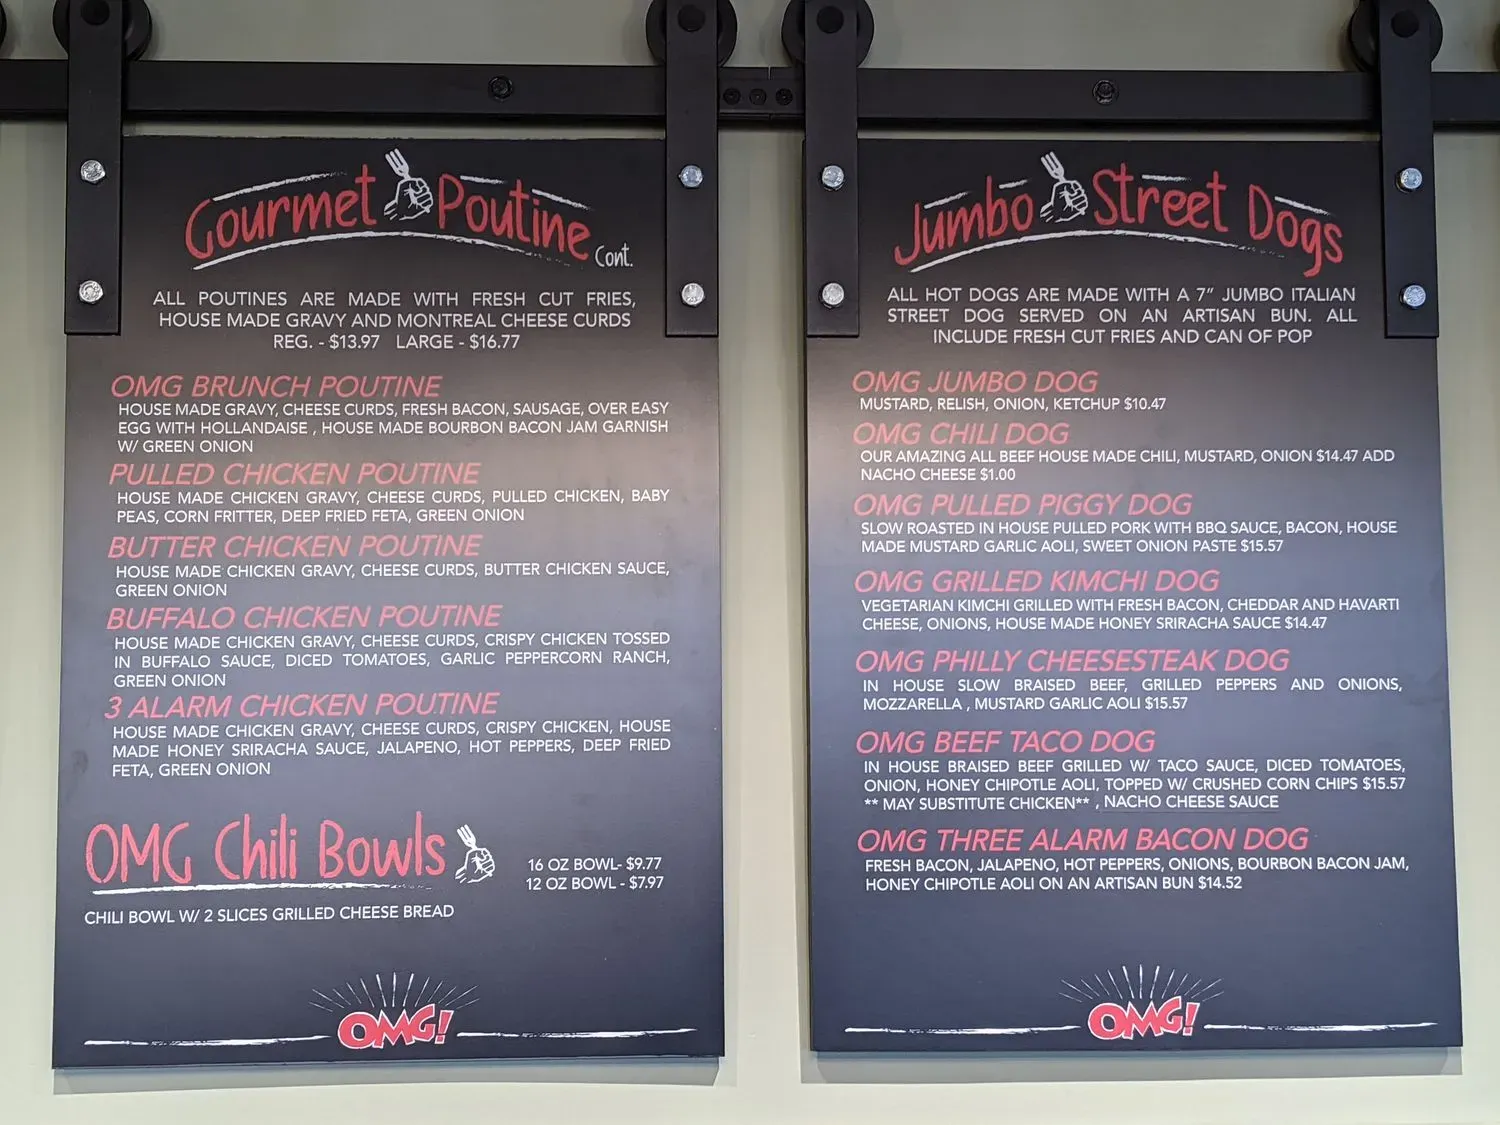 Gourmet Poutine Cont.
ALL POUTINES ARE MADE WITH FRESH CUT FRIES,
HOUSE MADE GRAVY AND MONTREAL CHEESE CURDS
REG. - $13.97 LARGE - $16.77
OMG BRUNCH POUTINE
HOUSE MADE GRAVY, CHEESE CURDS, FRESH BACON, SAUSAGE, OVER EASY
EGG WITH HOLLANDAISE , HOUSE MADE BOURBON BACON JAM GARNISH
W/ GREEN ONION
PULLED CHICKEN POUTINE
HOUSE MADE CHICKEN GRAVY, CHEESE CURDS, PULLED CHICKEN, BABY
PEAS, CORN FRITTER, DEEP FRIED FETA, GREEN ONION
BUTTER CHICKEN POUTINE
HOUSE MADE CHICKEN GRAVY, CHEESE CURDS, BUTTER CHICKEN SAUCE,
GREEN ONION
BUFFALO CHICKEN POUTINE
HOUSE MADE CHICKEN GRAVY, CHEESE CURDS, CRISPY CHICKEN TOSSED
IN BUFFALO SAUCE, DICED TOMATOES, GARLIC PEPPERCORN RANCH,
GREEN ONION
3 ALARM CHICKEN POUTINE
HOUSE MADE CHICKEN GRAVY, CHEESE CURDS, CRISPY CHICKEN, HOUSE
MADE HONEY SRIRACHA SAUCE, JALAPENO, HOT PEPPERS, DEEP FRIED
FETA, GREEN ONION
OMG Chili Bowls
16 OZ BOWL- $9.77
12 OZ BOWL - $7.97
CHILI BOWL W/ 2 SLICES GRILLED CHEESE BREAD
OMG!
Jumbo Street Dogs
ALL HOT DOGS ARE MADE WITH A 7" JUMBO ITALIAN
STREET DOG SERVED ON AN ARTISAN BUN. ALL
INCLUDE FRESH CUT FRIES AND CAN OF POP
OMG JUMBO DOG
MUSTARD, RELISH, ONION, KETCHUP $10.47
OMG CHILI DOG
OUR AMAZING ALL BEEF HOUSE MADE CHILI, MUSTARD, ONION $14.47 ADD
NACHO CHEESE $1.00
OMG PULLED PIGGY DOG
SLOW ROASTED IN HOUSE PULLED PORK WITH BBQ SAUCE, BACON, HOUSE
MADE MUSTARD GARLIC AOLI, SWEET ONION PASTE $15.57
OMG GRILLED KIMCHI DOG
VEGETARIAN KIMCHI GRILLED WITH FRESH BACON, CHEDDAR AND HAVARTI
CHEESE, ONIONS, HOUSE MADE HONEY SRIRACHA SAUCE $14.47
OMG PHILLY CHEESESTEAK DOG
IN HOUSE SLOW BRAISED BEEF, GRILLED PEPPERS AND ONIONS,
MOZZARELLA , MUSTARD GARLIC AOLI $15.57
OMG BEEF TACO DOG
IN HOUSE BRAISED BEEF GRILLED W/ TACO SAUCE, DICED TOMATOES,
ONION, HONEY CHIPOTLE AOLI, TOPPED W/ CRUSHED CORN CHIPS $15.57
** MAY SUBSTITUTE CHICKEN** , NACHO CHEESE SAUCE
OMG THREE ALARM BACON DOG
FRESH BACON, JALAPENO, HOT PEPPERS, ONIONS, BOURBON BACON JAM,
HONEY CHIPOTLE AOLI ON AN ARTISAN BUN $14.52
OMG!